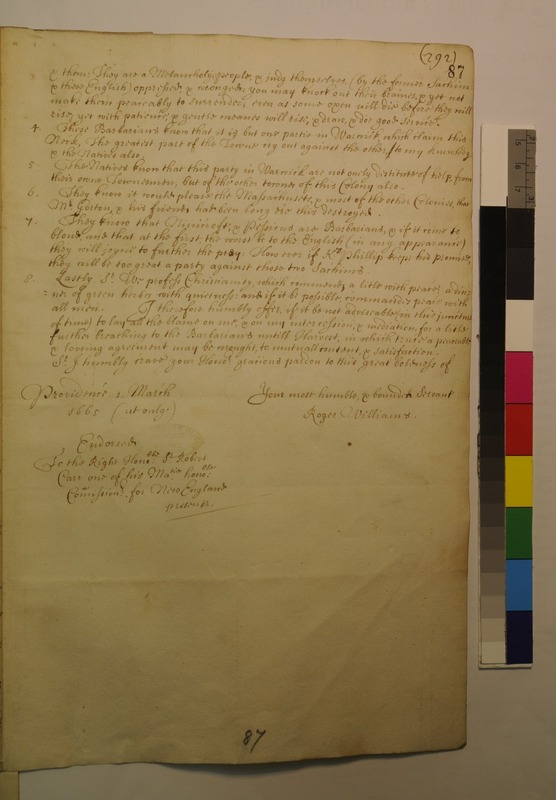 (292)
87
& them: They are a Melancholy people, & judg themselves (by the former Sachim
& these English) oppressed & wronged, you may knock out their braines, & yet not
make them peaceably to surrender, even as some oxen will die before they will
rise, yet with patience, & gentle meanes will rise, & draw, & doe good service.
4. These Barbarians know that it is but one partie in Warwick which claim this
Neck, the greatest part of the Towne cry out against the other, to my knowledge
& the Natives also.
5. The Natives know that this party in Warwick are not only destitute of help from
their owne Townesmen, but of the other townes of this Colony also.
6. They know it would please the Massatusets, & most of the other Colonies, that
Mr Gorton, & his friends had been long ere this destroyed.
7. They know that Ninicroft, & Pessicus are Barbarians, & if it come to
blood, and that at the first the worst be to the English (in any appearance)
they will joyne to further the prey. However if Kg Phillip keeps his promise,
they will be too great a party against those two Sachims.
8. Lastly Sr. We profess Christianity, which commends a litle with peace, a dinn-
ner of green herbs with quietness: and if it be possible commands peace with
all men. I therefore humbly offer, if it be not adviseable (in this juncture
of time) to lay all the blame on me, & on my intercession, & mediation, for a litle
further breathing to the Barbarians untill Harvest, in which time a peaceable
& loveing agreement may be wrought, to mutuall content, & satisfaction.
Sr. I humbly crave your Honrs gracious pardon to this great boldness of
Your most humble & bounden Servant
Roger Williams.
Providence 1. March
1665 (ut vulgo)
Endorsed
To the Right Honoble Sr Robert
Carr one of his Matie honoble
Comissionrs for New England
present.
87